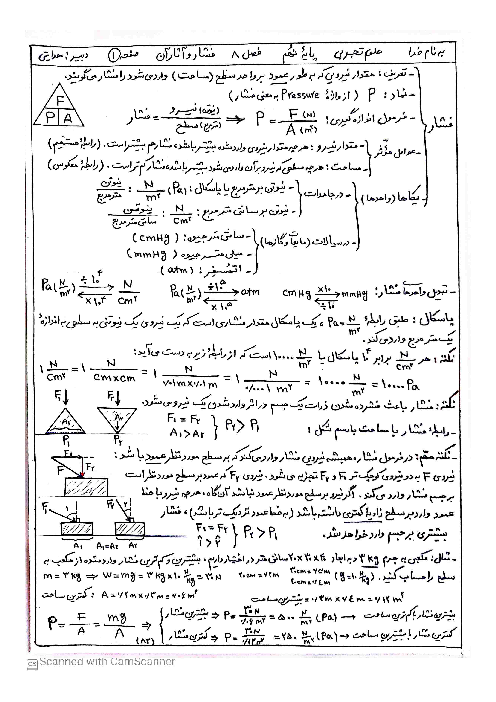 به نام خدا علوم تجربی پایهٔ نهم فصل ۸ فشار و آثار آن صفحه ۱ دبیر: هدایتی
تعریف: مقدار نیرویی که به طور عمود بر واحد سطح (مساحت) وارد می‌شود را فشار می‌گویند.
نماد: P (از واژهٔ Pressure به معنی فشار)
فشار
فرمول اندازه‌گیری: P = F (N) / A (m²) ⇒ فشار = نیرو (نیوتون) / سطح (مترمربع)
F
P A
عوامل مؤثر
مقدار نیرو: هر چه مقدار نیروی وارد شده بیشتر باشد، فشار هم بیشتر است. (رابطهٔ مستقیم)
مساحت: هر چه سطحی که نیرو بر آن وارد می‌شود بیشتر باشد، فشار کم‌تر است. (رابطهٔ معکوس)
یکاها (واحدها)
در جامدات
نیوتون بر مترمربع یا پاسکال: (Pa) N/m² : نیوتون/مترمربع
نیوتون بر سانتی مترمربع: N/cm² : نیوتون/سانتی مترمربع
در سیالات (مایع و گازها)
سانتی متر جیوه: (cmHg)
میلی متر جیوه: (mmHg)
اتمسفر: (atm)
تبدیل واحدها فشار: cmHg ×۱۰ ÷۱۰ mmHg Pa(N/m²) ÷۱۰⁵ ×۱۰⁵ atm Pa(N/m²) ÷۱۰⁴ ×۱۰⁴ N/cm²
پاسکال: طبق رابطهٔ Pa = N/m²، یک پاسکال مقدار فشاری است که یک نیروی یک نیوتونی به سطحی به اندازهٔ
یک مترمربع وارد می‌کند.
نکته: هر N/cm² برابر ۱۰⁴ پاسکال یا ۱۰۰۰۰ N/m² است که از رابطهٔ زیر به دست می‌آید:
۱ N/cm² = ۱ N/cm×cm = ۱ N/۰/۰۱m×۰/۰۱m = ۱ N/۰/۰۰۰۱ m² = ۱۰۰۰۰ N/m² = ۱۰۰۰۰ Pa
نکته: فشار باعث فشرده شدن ذرات یک جسم در اثر وارد شدن یک نیرو می‌شود.
رابطهٔ فشار با مساحت با رسم شکل: F₁ = F₂ A₁ > A₂ } P₂ > P₁
F₁ A₁ P₁ F₂ A₂ P₂
نکته مهم: در فرمول فشار، همیشه نیرویی فشار وارد می‌کند که به سطح مورد نظر عمود باشد:
نیروی F به دو نیروی کوچک‌تر F₁ و F₂ تجزیه می‌شود. نیروی F₂ که عمود بر سطح مورد نظر است
بر جسم فشار وارد می‌کند. اگر نیرو بر سطح مورد نظر عمود نباشد آن‌گاه، هر چه نیرو با خط
عمود وارد بر سطح زاویهٔ کمتری داشته باشد (به خط عمود نزدیک‌تر باشد)، فشار
بیشتری بر جسم وارد خواهد شد. F₁ = F₂ } P₂ > P₁
F₁ F₂ F
P₁ A₁ = A₂ P₂
مثال: مکعبی به جرم ۳ kg و به ابعاد ۲۰×۳۰×۴۰ سانتی متر در اختیار داریم. بیشترین و کم‌ترین فشار وارد شده از مکعب به
سطح را حساب کنید. (g = ۱۰ N/kg)
m = ۳ kg ⇒ W = mg = ۳ kg × ۱۰ N/kg = ۳۰ N ۲۰ cm = ۰/۲ m ۳۰ cm = ۰/۳ m ۴۰ cm = ۰/۴ m
کمترین مساحت: A = ۰/۲m × ۰/۳m = ۰/۰۶ m² بیشترین مساحت = ۰/۳m × ۰/۴m = ۰/۱۲ m²
P = F/A = mg/A ⇒ بیشترین فشار ⇒ P = ۳۰ N/۰/۰۶ m² = ۵۰۰ N/m² (Pa) → بیشترین فشار با کم‌ترین مساحت
کمترین فشار ⇒ P = ۳۰ N/۰/۱۲ m² = ۲۵۰ N/m² (Pa) → کمترین فشار با بیشترین مساحت
CS Scanned with CamScanner